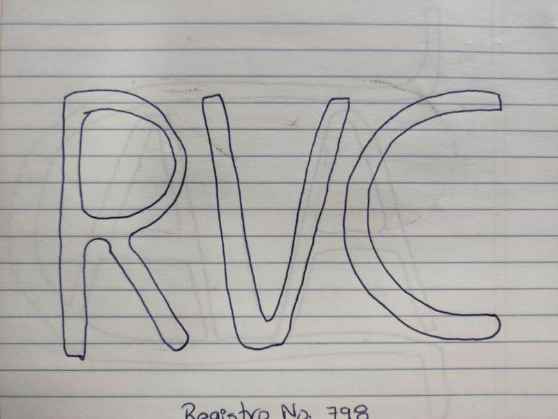 RVC
Registro No. 798